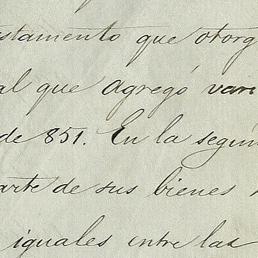 estamento que otorg
al que agregó vari
de 851. En la segun
arte de sus bienes
iguales entre las